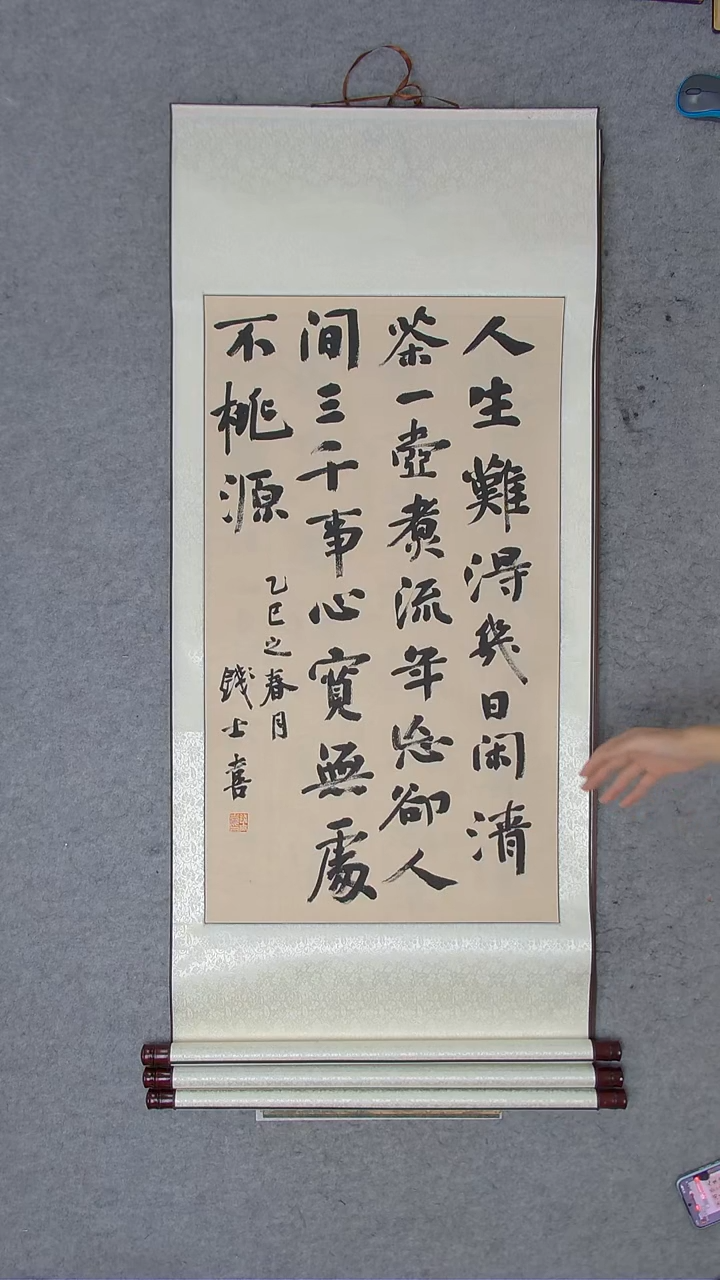 人生難得幾日闲清
茶一壺煮流年忘卻人
间三千事心寬無處
不桃源
乙巳之春月
錢士喜